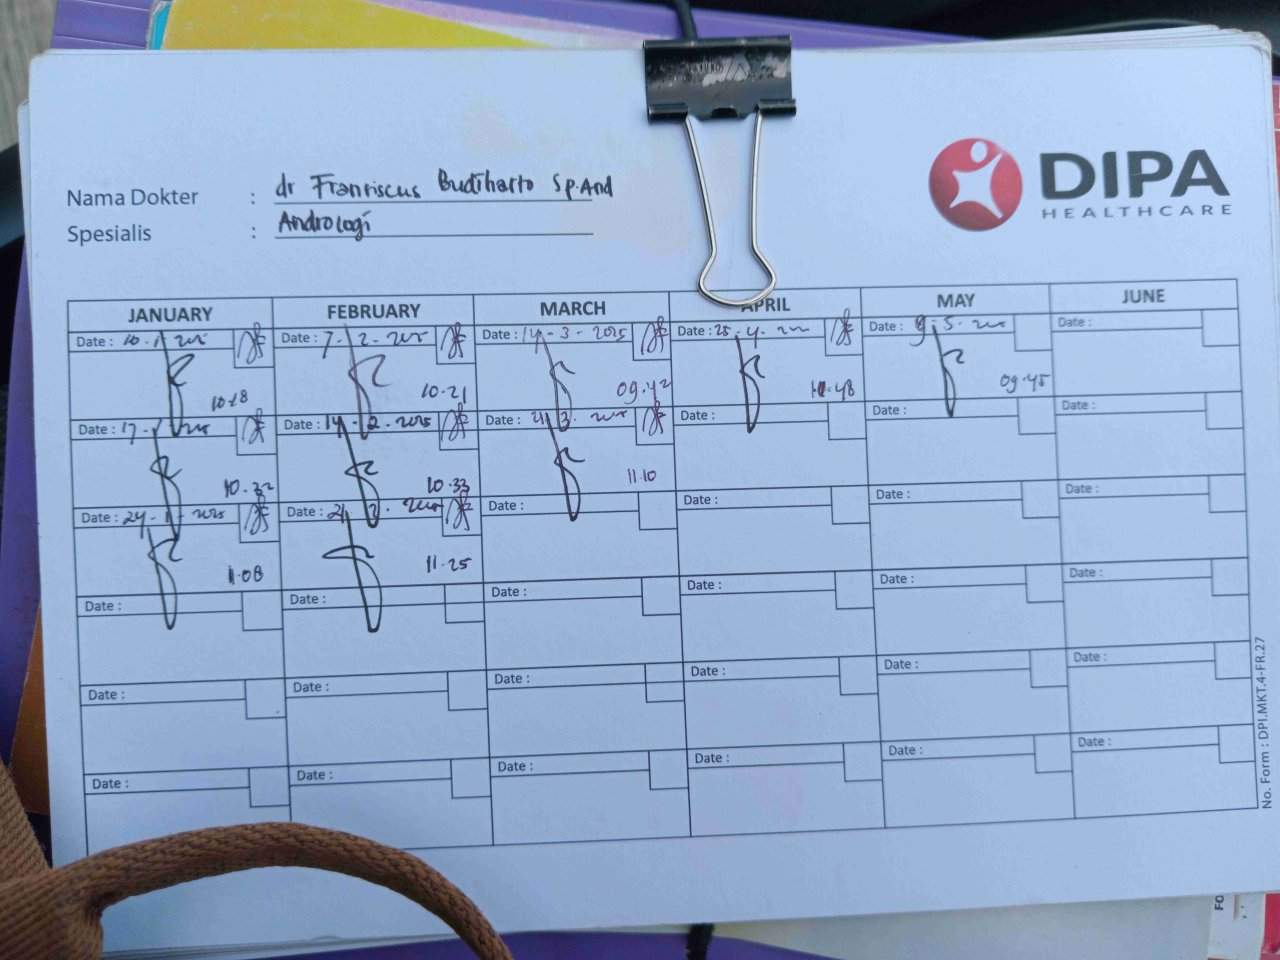 DIPA
HEALTHCARE
Nama Dokter : dr Franciscus Budiharto Sp.And
Spesialis : Andrologi
JANUARY FEBRUARY MARCH APRIL MAY JUNE
Date : 10-1-2025 Date : 7-2-2025 Date : 14-3-2025 Date : 25-4-2025 Date : 9-5-2025 Date :
10.18 10.21 09.42 11.48 09.45
Date : 17-1-2025 Date : 14-2-2025 Date : 21-3-2025 Date : Date : Date :
10.32 10.33 11.10
Date : 24-1-2025 Date : 21-2-2025 Date : Date : Date : Date :
11.08 11.25
Date : Date : Date : Date : Date : Date :
Date : Date : Date : Date : Date : Date :
Date : Date : Date : Date : Date : Date :
No. Form : DPI.MKT.4-FR.27
FO